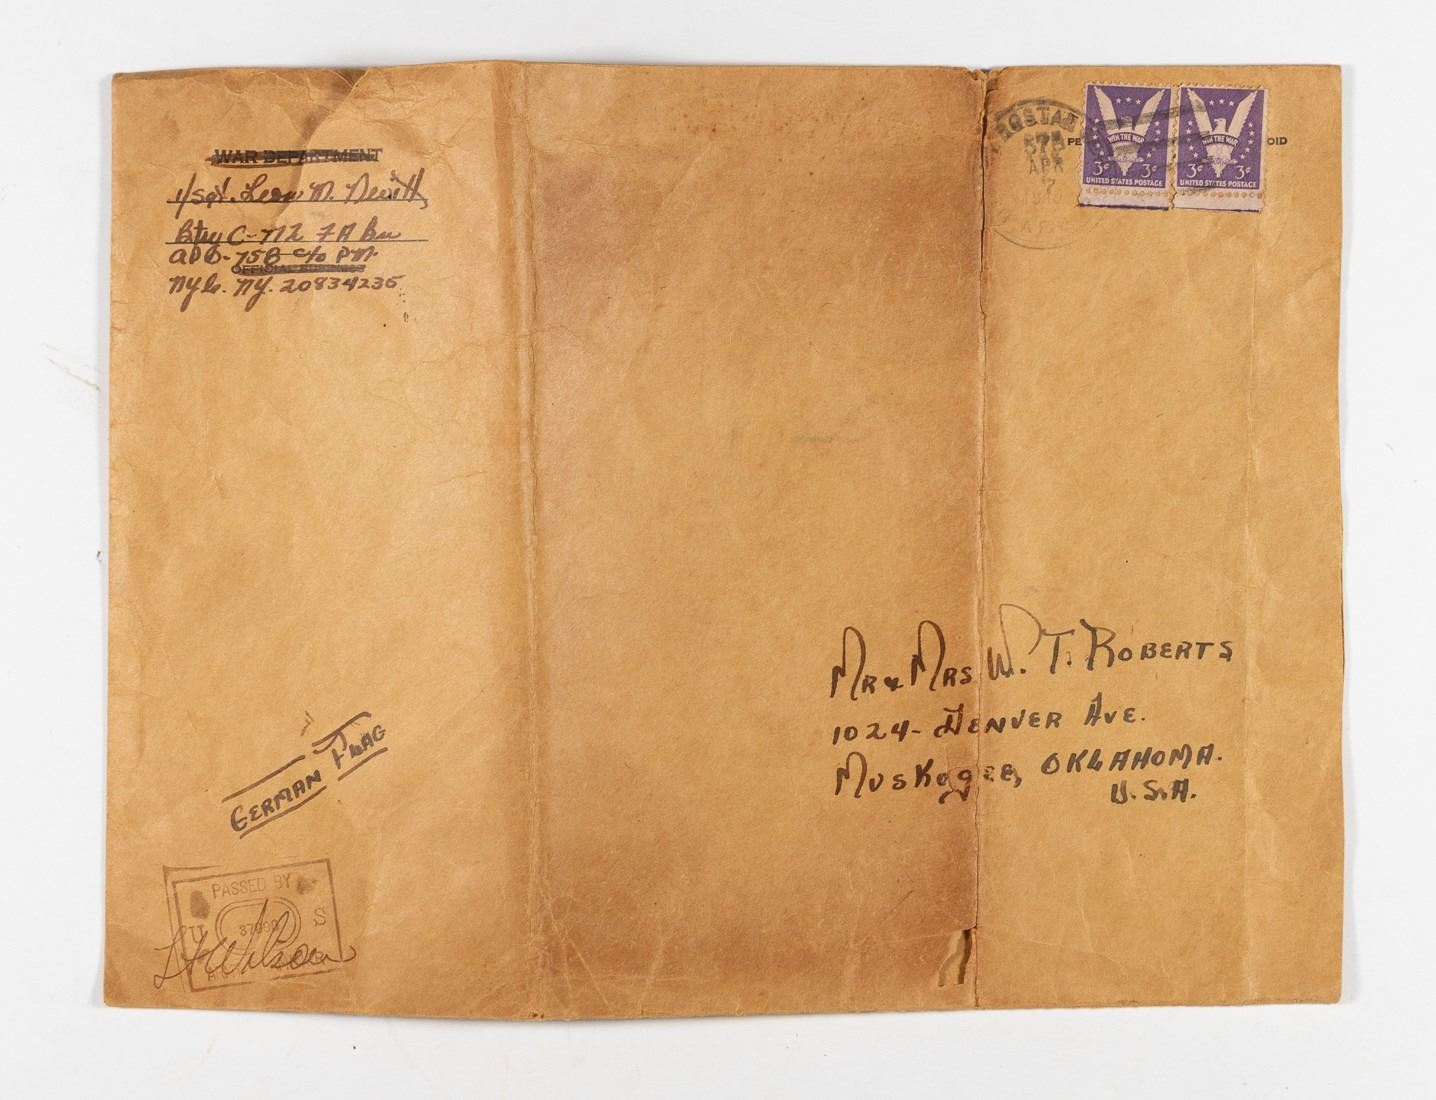 WAR DEPARTMENT
Leon M.
Btry C-772 FA Bn
APO-758 c/o PM.
OFFICIAL BUSINESS
NYC. NY. 20834235
578
APR
7
PE
OID
WIN THE WAR
3¢ 3¢
UNITED STATES POSTAGE
WIN THE WAR
3¢ 3¢
UNITED STATES POSTAGE
MR & MRS W. T. ROBERTS
1024 - DENVER AVE.
MUSKOgEE, OKLAHOMA.
U.S.A.
GERMAN FLAG
PASSED BY
U S
Lt Wilson